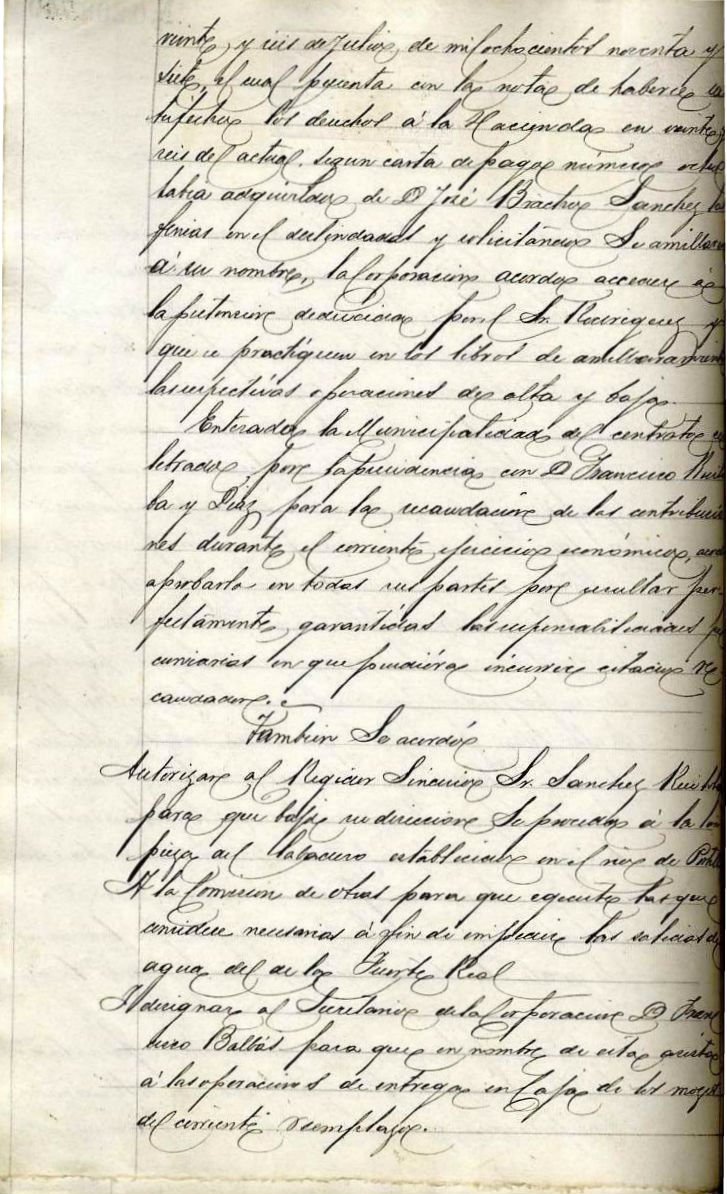 veinte y seis de Julio, de mil ochocientos noventa y
siete, el cual presenta con la nota de haberse sa
tisfecho los derechos á la Hacienda en veinte y
seis del actual, segun carta de pago número ocho
habia adquirido de D José Bracho Sanchez las
fincas en el deslindadas y solicitando Se amillaren
á su nombre, la Corporacion acordó acceder á
la pretension deducida por el Sr. Rodriguez y
que se practiquen en los libros de amillaramiento
las respectivas operaciones de alta y baja.
Enterada la Municipalidad del contrato ce
lebrado por la presidencia con D Francisco
ba y Diaz para la recaudacion de las contribucio
nes durante el corriente ejercicio económico, acordó
aprobarlo en todas sus partes por resultar per
fectamente garantidas las responsabilidades pe
cuniarias en que pudiera incurrir citado re
caudador.
Tambien Se acordó
Autorizar al Regidor Sindico Sr. Sanchez
para que bajo su direccion Se proceda á la lim
pieza del labadero establecido en el rio de
A la Comision de obras para que egecute las que
considere necesarias á fin de impedir las salidas de
agua del de la Fuente Real
I designar al Secretario de la Corporacion D Fran
cisco Balbás para que en nombre de esta asista
á las operaciones de entrega en Caja de los mozos
del corriente reemplazo.